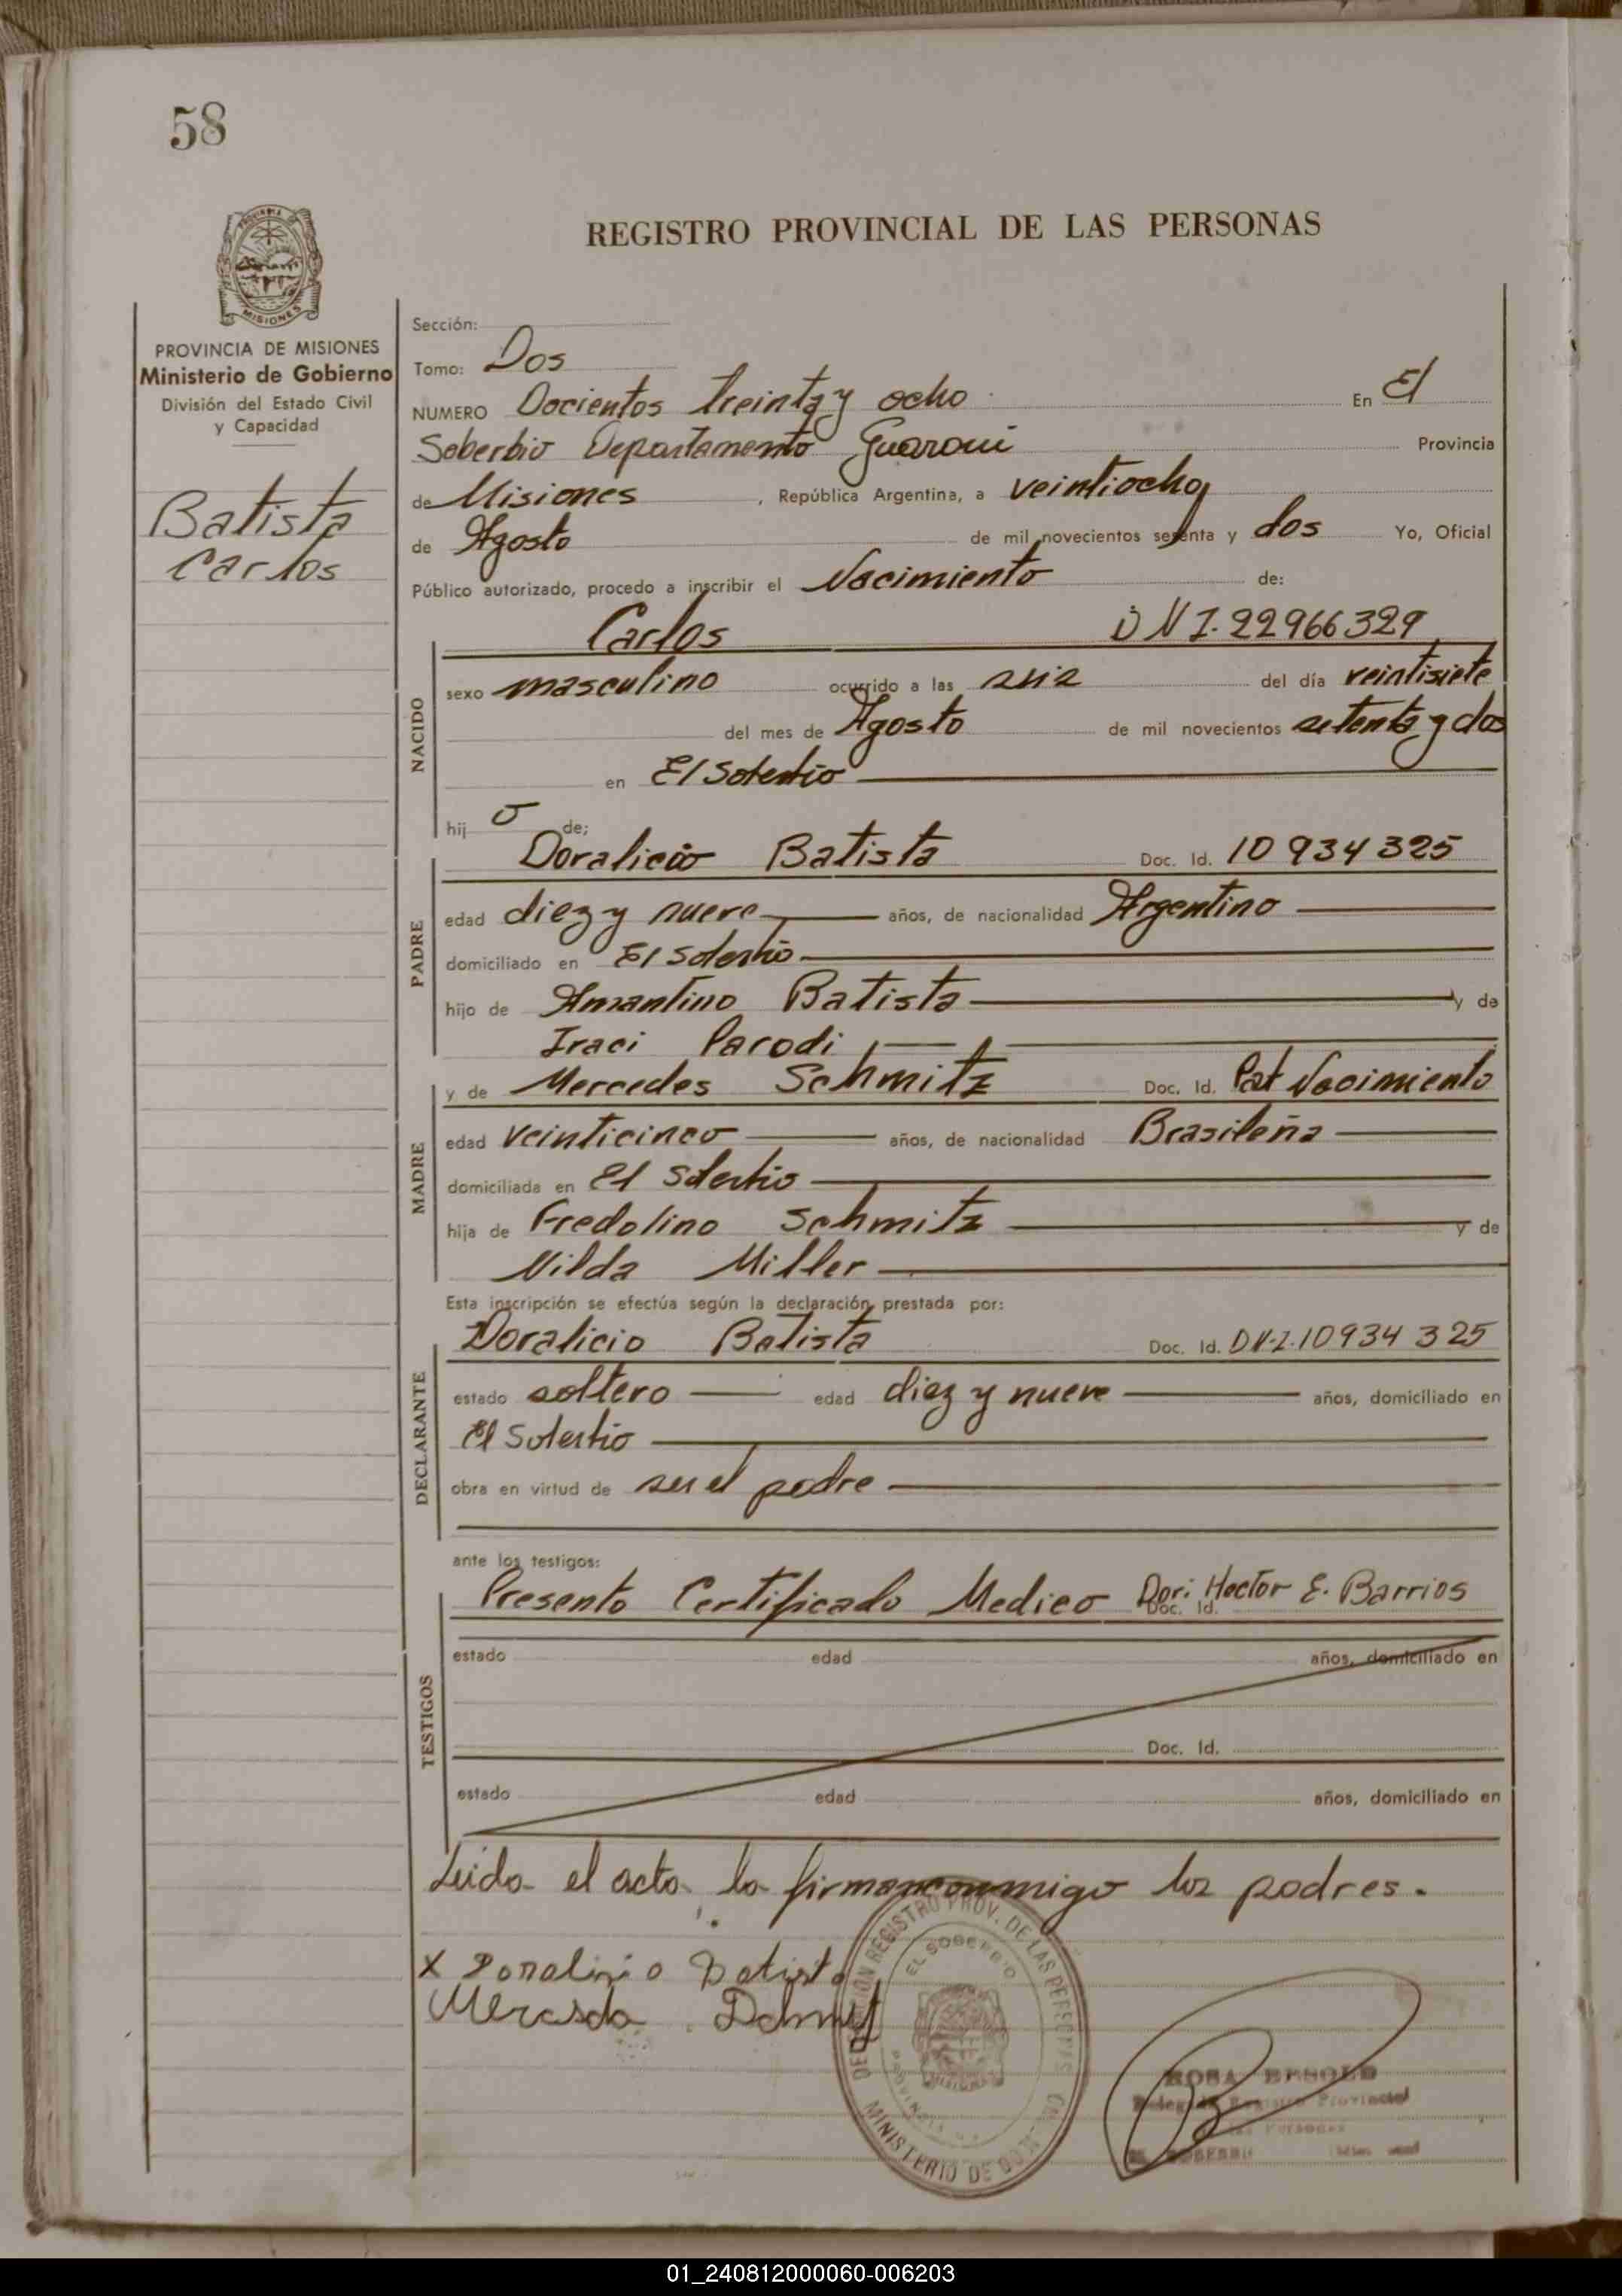 58
PROVINCIA DE MISIONES
Ministerio de Gobierno
División del Estado Civil
y Capacidad
Batista
Carlos
REGISTRO PROVINCIAL DE LAS PERSONAS
Sección:
Tomo: Dos
NUMERO Docientos treinta y ocho En El
Soberbio Departamento Guarani Provincia
de Misiones , República Argentina, a veintiocho
de Agosto de mil novecientos setenta y dos Yo, Oficial
Público autorizado, procedo a inscribir el Nacimiento de:
Carlos DNI. 22966329
NACIDO
sexo masculino ocurrido a las seis del día veintisiete
del mes de Agosto de mil novecientos setenta y dos
en El Soberbio
hij o de;
PADRE
Doralicio Batista Doc. Id. 10 934 325
edad diez y nueve años, de nacionalidad Argentino
domiciliado en El Soberbio
hijo de Amantino Batista y de
Iraci Parodi
MADRE
y de Mercedes Schmitz Doc. Id. Part Nacimiento
edad veinticinco años, de nacionalidad Brasileña
domiciliada en El Soberbio
hija de Fredolino Schmitz y de
Nilda Miller
Esta inscripción se efectúa según la declaración prestada por:
DECLARANTE
Doralicio Batista Doc. Id. DN.I. 10934 325
estado soltero edad diez y nueve años, domiciliado en
El Soberbio
obra en virtud de ser el padre
ante los testigos:
TESTIGOS
Presento Certificado Medico Dor: Hector E. Barrios
Doc. Id.
estado edad años, domiciliado en
Doc. Id.
estado edad años, domiciliado en
Leida el acta la firman conmigo los padres.
X Doralizio Batista
DELEGACION REGISTRO PROV. DE LAS PERSONAS
EL SOBERBIO
MINISTERIO DE
ROSA
Registro Provincial
las Personas
01_240812000060-006203